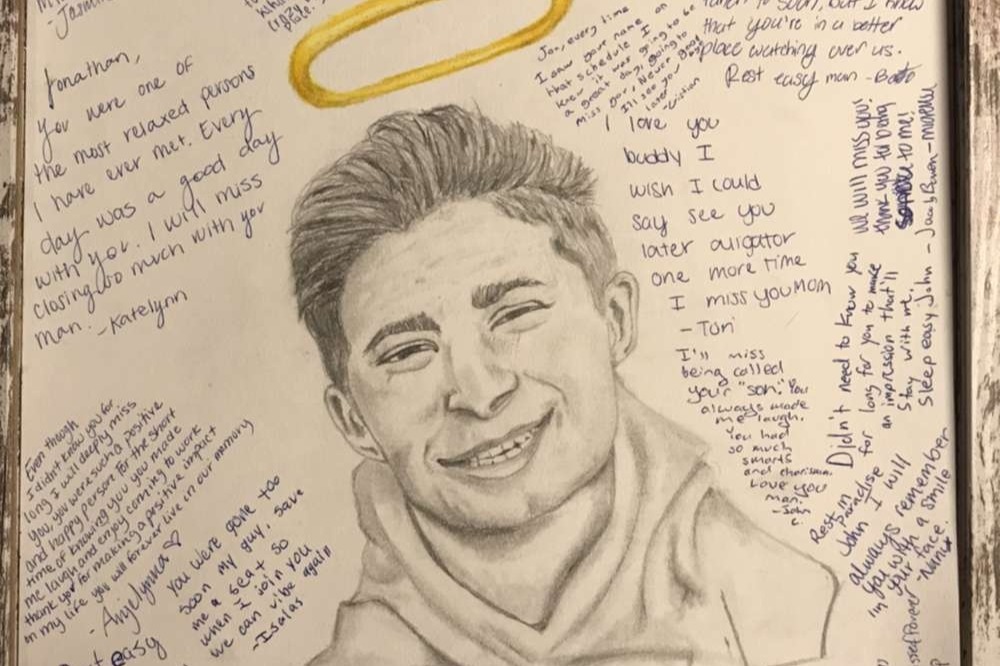 - Jasmin
Jonathan,
you were one of
the most relaxed persons
I have ever met. Every
day was a good day
with you. I will miss
closing so much with you
man. -Katelynn
Jon, every time
I saw your name on
that schedule I
knew it was going to be
a great day, going to
miss our
I'll see you
later
taken to soon, but I know
that you're in a better
place watching over us.
Rest easy man -
I love you
buddy I
wish I could
say see you
later aligator
one more time
I miss you mom
- Tori
I'll miss
being called
your "son." You
always made
me laugh.
You had
so much
smarts
and charisma.
Love you
man.
-John
C.
we will miss you!
thank you to being
to me!
Didn't need to know you
for long for you to make
an impression that'll
stay with me.
Sleep easy John - Jacob Bowen -
Rest in
Paradise
John I will
always remember
you with a smile
in your face.
Even though
I didn't know you for
long I will deeply miss
you, you were such a positive
and happy person for the short
time of knowing you you made
me laugh and enjoy coming to work
thank you for making a positive impact
in my life you will forever live in our memory
- Angelynna ♡
you were gone too
soon my guy, save
me a seat so
when I join you
we can vibe again
-Isaias
easy